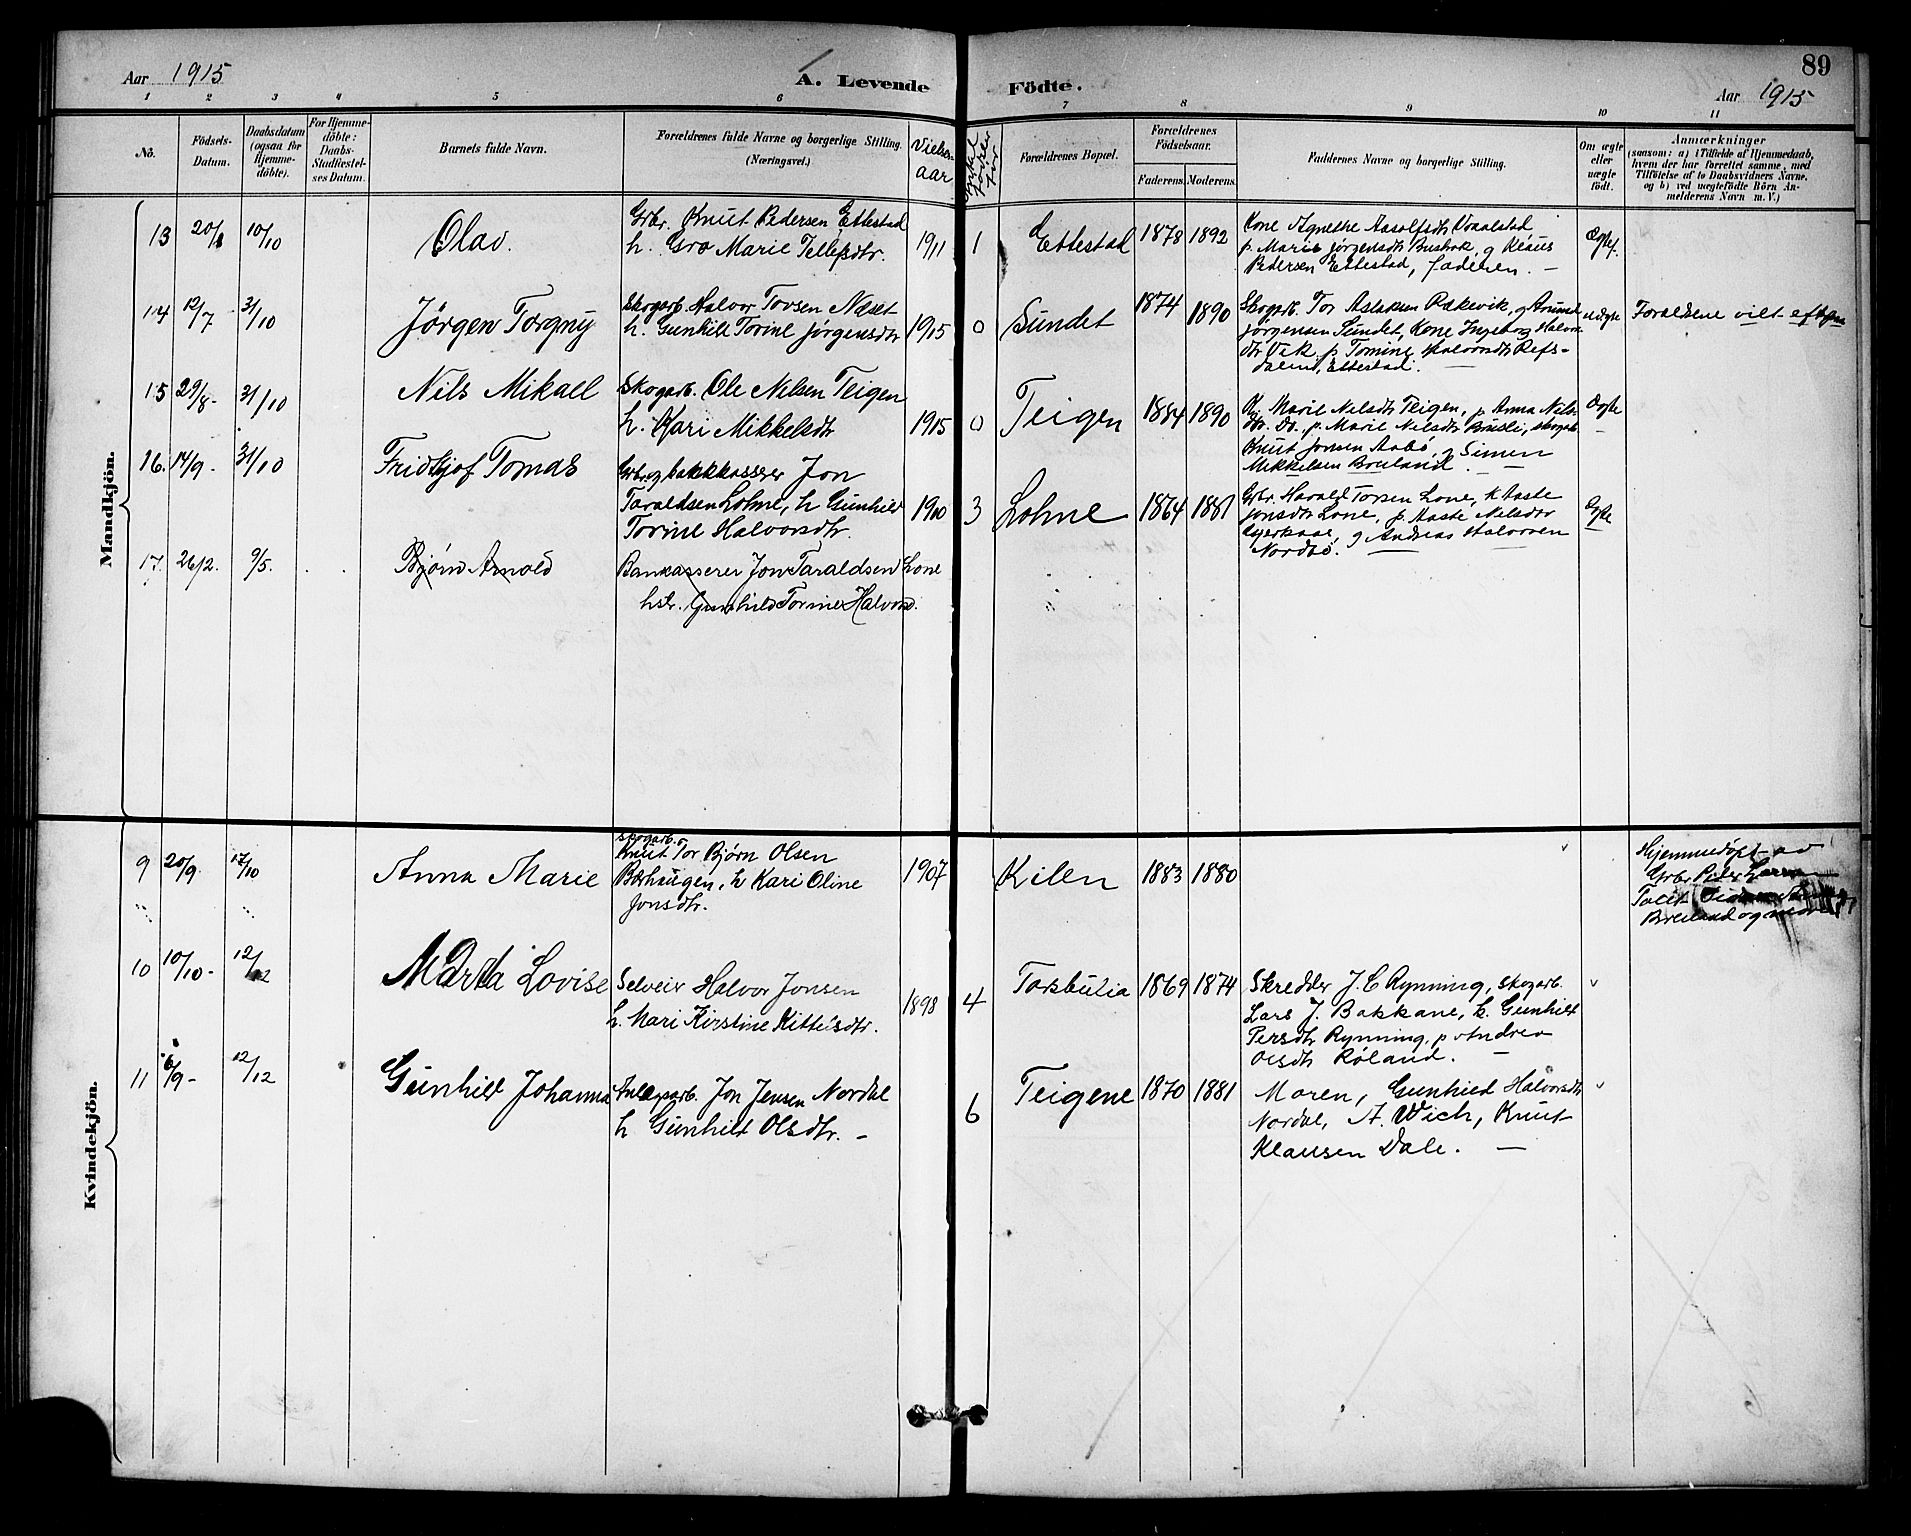 89
Aar 1915
A. Levende
Födte.
Aar 1915
1 2 3 4 5 6 7 8 9 10 11
No.
Födsels-
Datum.
Daabsdatum
(ogsaa for
Hjemme-
döbte).
For Hjemme-
döbte:
Daabs-
Stadfæstel-
ses Datum.
Barnets fulde Navn.
Forældrenes fulde Navne og borgerlige Stilling.
(Næringsvei.)
Vielses-
aar
Forældrenes Bopæl.
Forældrenes
Födselsaar.
Faderens. Moderens.
Faddernes Navne og borgerlige Stilling.
Om ægte
eller
uægte
födt.
Anmærkninger
(saasom: a) i Tilfælde af Hjemmedaab,
hvem der har forrettet samme, med
Tilföielse af to Daabsvidners Navne,
og b) ved uægtefödte Börn An-
melderens Navn m. V.)
Mandkjön.
13 20/8 10/10 Olav.
Gbr. Knut Pedersen Ettestad
h. Gro Marie Tellefsdtr. 1911
1 Ettestad 1878 1892
Kone Agnethe Aasolfsdtr Vraalstad
p. Marie Jørgensdtr Busbak, g Klaus
Pedersen Ettestad, faderen. —
Ægte
14 12/7 31/10 Jörgen Torgny
Skogarb. Halvor Tovsen Næset
h. Gunhild Torine Jørgensdtr 1915
0 Sundet 1874 1890
Skogarb. Tor Aslaksen Rækevik, og Amund
Jørgensen Sundet, Kone Ingeborg Halvors
dtr Vik, p. Tomine Halvorsdtr Refs-
dalen, Ettestad.
uægte
Forældrene viet
15 29/8- 31/10 Nils Mikael
Skogarb. Ole Nelsen Teigen
h. Kari Mikkelsdtr 1915
0 Teigen 1884 1890
Marie Nelsdtr Teigen, p Anna Nils-
dtr. Do. p. Marie Nilsdtr skogarb
Knut Jonsen Aabø, g Simen
Mikkelsen Breiland. —
Ægte
16. 14/9- 31/10 Fridtjof Tomas
Gbr. og bankkasserer Jon
Taraldsen Lohne, h Gunhild
Torine Halvorsdtr. 1910
3 Lohne 1864 1881
Gbr. Harald Torsen Lone, k Aaste
Jonsdtr Lone, p. Aaste Nelsdtr
g Andreas Halvorsen
Nordbø.
Ægte
17. 26/2. 9/5. Bjørn Arnold
Bankasserer Jon Taraldsen Lone
hstr. Gunhild Torine Halvorsd.
Kvindekjön.
9 20/9. 17/10 Anna Marie
Skogarb.
Knut Tor Bjørn Olsen
Bærhaugen, h Kari Oline
Jonsdtr. 1907
Kilen 1883 1880
Hjemmedøpt av
Gbr Peder Larsen
Breiland og mor
10 10/10- 12/12 Marta Lovise
Selveier Halvor Jonsen
h. Mari Kirstine Kittilsdtr. 1898
4 Torsbulia 1869 1874
Skredder J. C Rynning, skogarb.
Lars J. Bakkane, k. Gunhild
Persdtr Rynning, p. Andrea
Olsdtr Røland. —
11 6/9- 12/12 Gunhild Johanna
Anlegsarb. Jon Jensen Nordal
h Gunhild Olsdtr. —
6 Teigene 1870 1881
Moren, Gunhild Halvorsdtr
Nordal, A. Wich, Knut
Klausen Dale. —